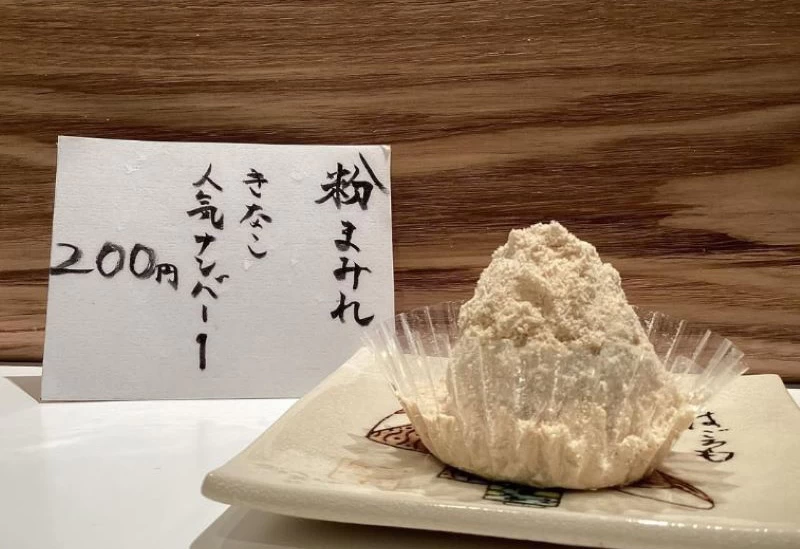 粉まみれ
きなこ
人気ナンバー1
200円